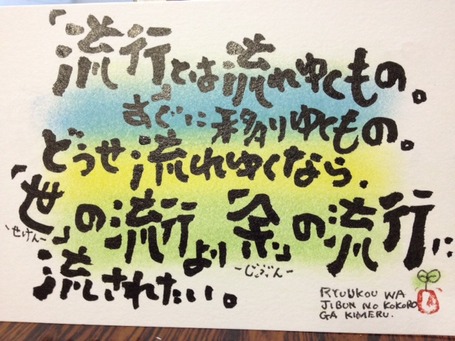 「流行」とは流れゆくもの。
すぐに移りゆくもの。
どうせ流れゆくなら、
「世」の流行より「余」の流行に
ーせけんー
ーじぶんー
流されたい。
RYUUKOU WA
JIBUN NO KOKORO
GA KIMERU.